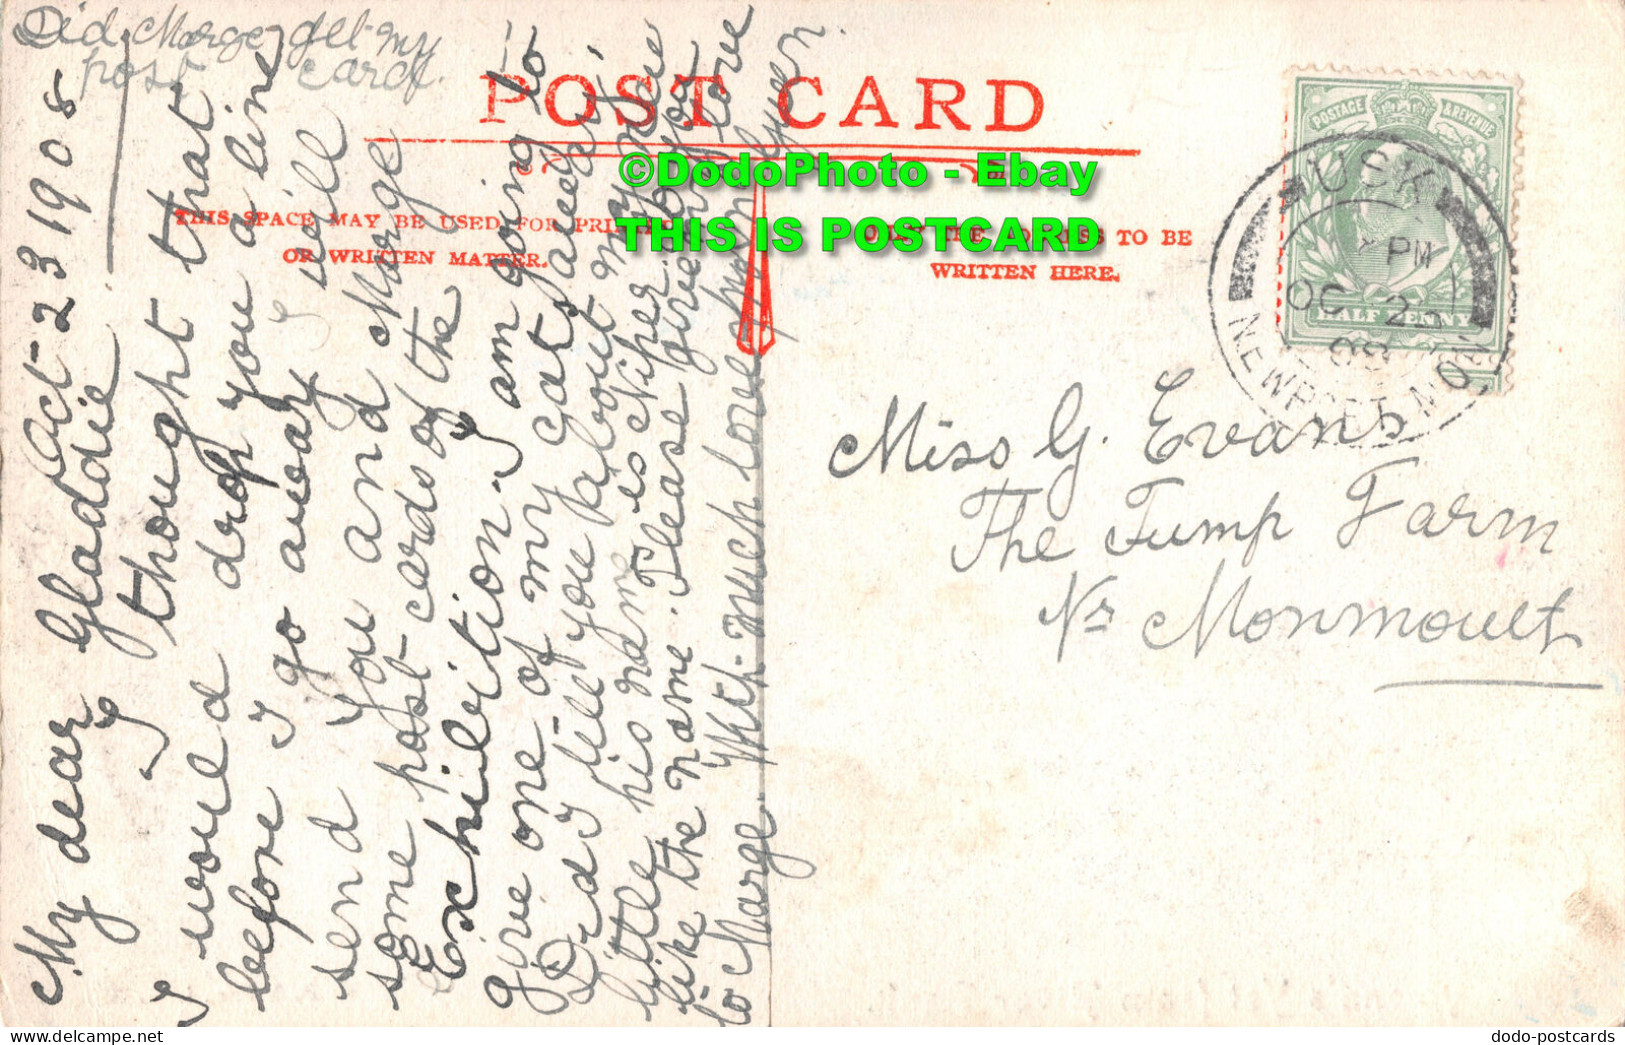 Did Marge get my
post card.
Oct-23 1908
My dear Gladdie
I thought that
I would drop you a line
before I go away will
send you and Marge
some post-cards of the
Exhibition. I am going to
give one of my cats away.
Did I tell you about my new
little his name is Niher do you
like the name. Please give my love
to Marge. With much love from Gwen.
POST CARD
THIS SPACE MAY BE USED FOR
OR WRITTEN MATTER.
TO BE
WRITTEN HERE.
©DodoPhoto - Ebay
THIS IS POSTCARD
POSTAGE & REVENUE
HALF PENNY
USK
PM
OC 23
08
NEWPORT MON
Miss G. Evans
The Tump Farm
Nr Monmouth
dodo-postcards